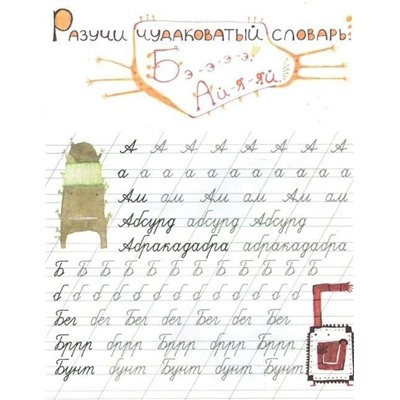 Разучи чудаковатый словарь:
Бэ-э-э-э!
Ай-я-яй.
А А А А А А А А
а а а а а а а а
Ам ам Ам ам Ам ам
Абсурд абсурд Абсурд
Абракадабра абракадабра
Б Б Б Б Б Б Б Б Б Б Б
б б б б б б б б б б б
Бег бег Бег бег Бег
Бррр бррр Бррр бррр Бррр
Бунт бунт Бунт бунт Бунт